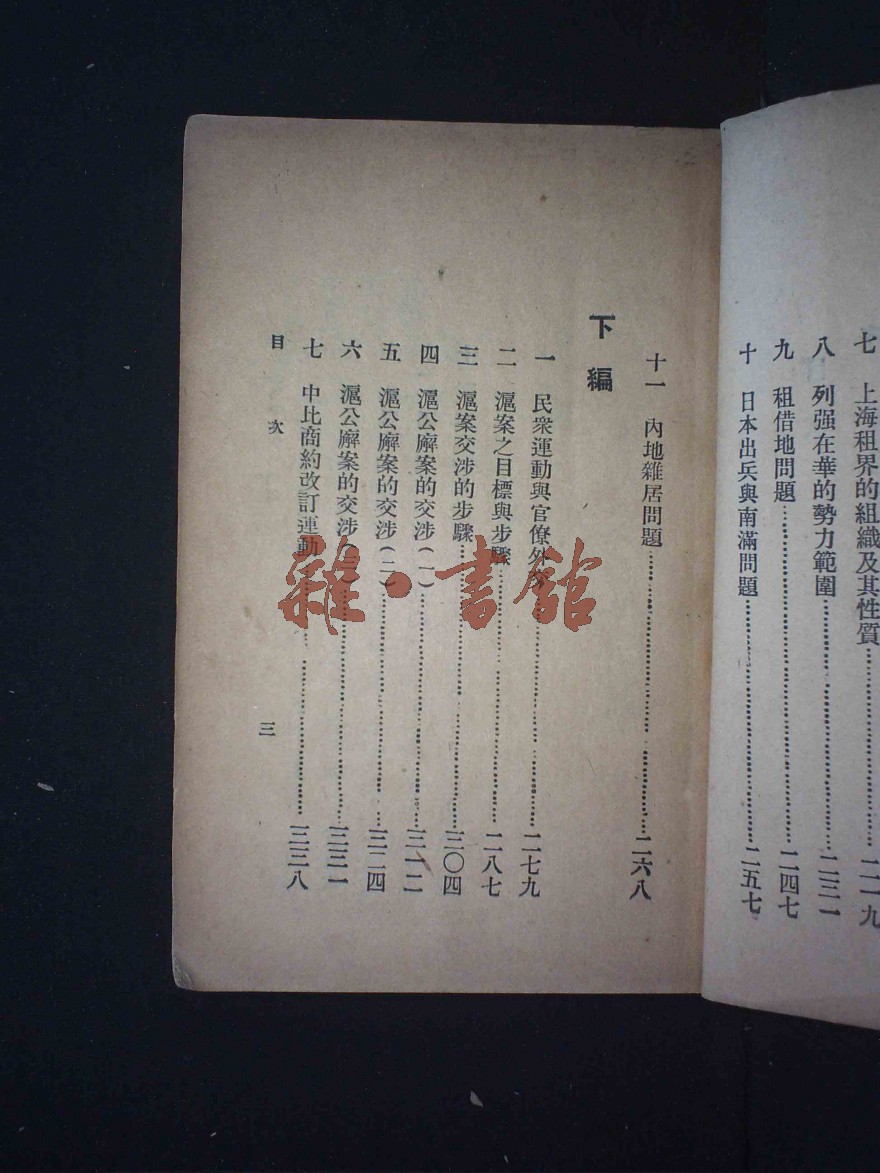 七 上海租界的組織及其性質……二一九
八 列强在華的勢力範圍……二三一
九 租借地問題……二四七
十 日本出兵與南滿問題……二五七
十一 內地雜居問題……二六八
下編
一 民衆運動與官僚外……二七九
二 滬案之目標與步驟……二八七
三 滬案交涉的步驟……三〇四
四 滬公廨案的交涉(一)……三一二
五 滬公廨案的交涉(二)……三二四
六 滬公廨案的交涉(三)……三三一
七 中比商約改訂運動……三三八
目次
三
雜·書館